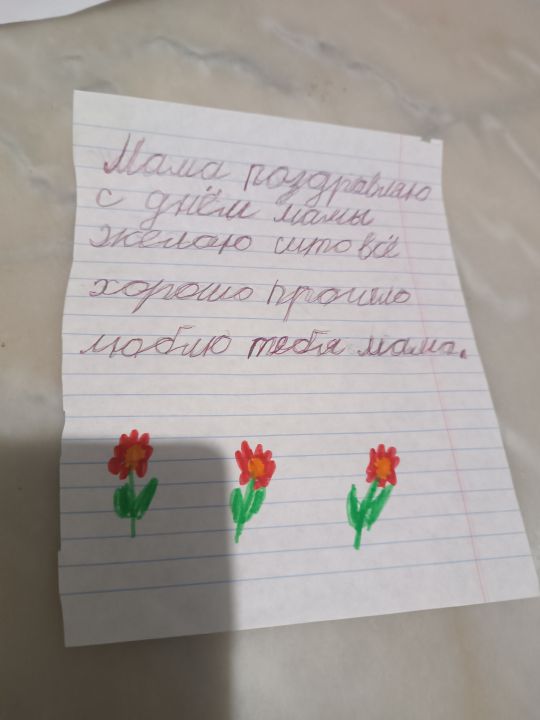 Мама поздравляю
с днём мамы
желаю што всё
хорошо прошло
люблю тебя мама.